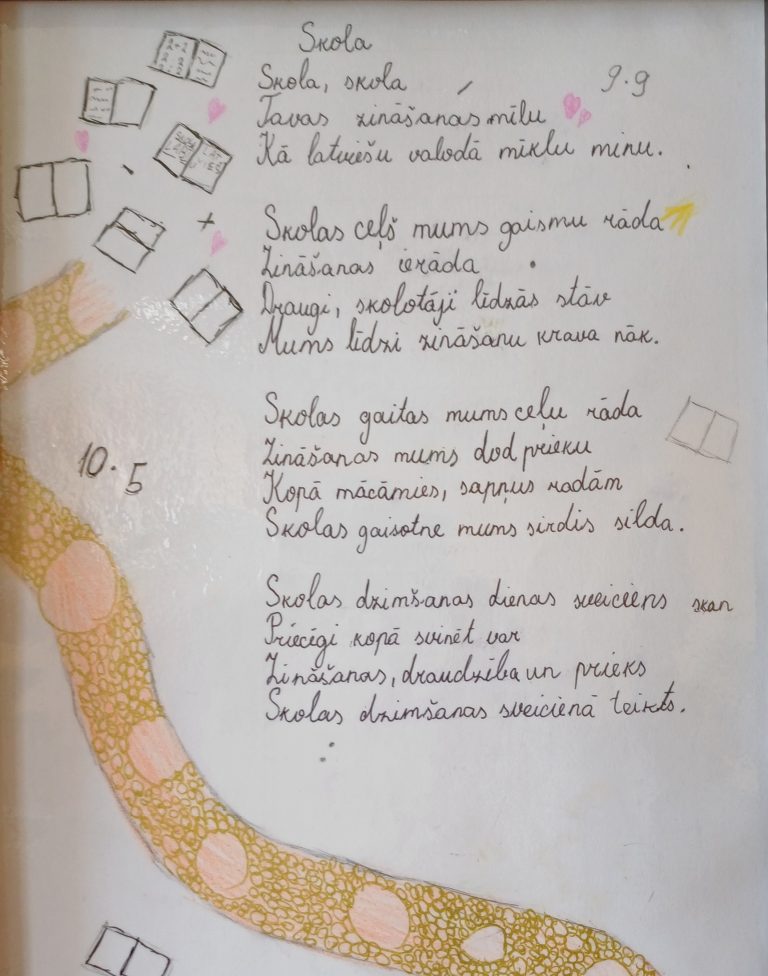 Skola
Skola, skola
9.9
Tavas zināšanas mīlu
Kā latviešu valodā mīklu minu.
Skolas ceļš mums gaismu rāda
Zināšanas ierāda
Draugi, skolotāji līdzās stāv
Mums līdzi zināšanu krava nāk.
Skolas gaitas mums ceļu rāda
Zināšanas mums dod prieku
Kopā mācāmies, sapņus radām
Skolas gaisotne mums sirdis silda.
10.5
Skolas dzimšanas dienas sveiciens skan
Priecīgi kopā svinēt var
Zināšanas, draudzība un prieks
Skolas dzimšanas sveicienā teikts.